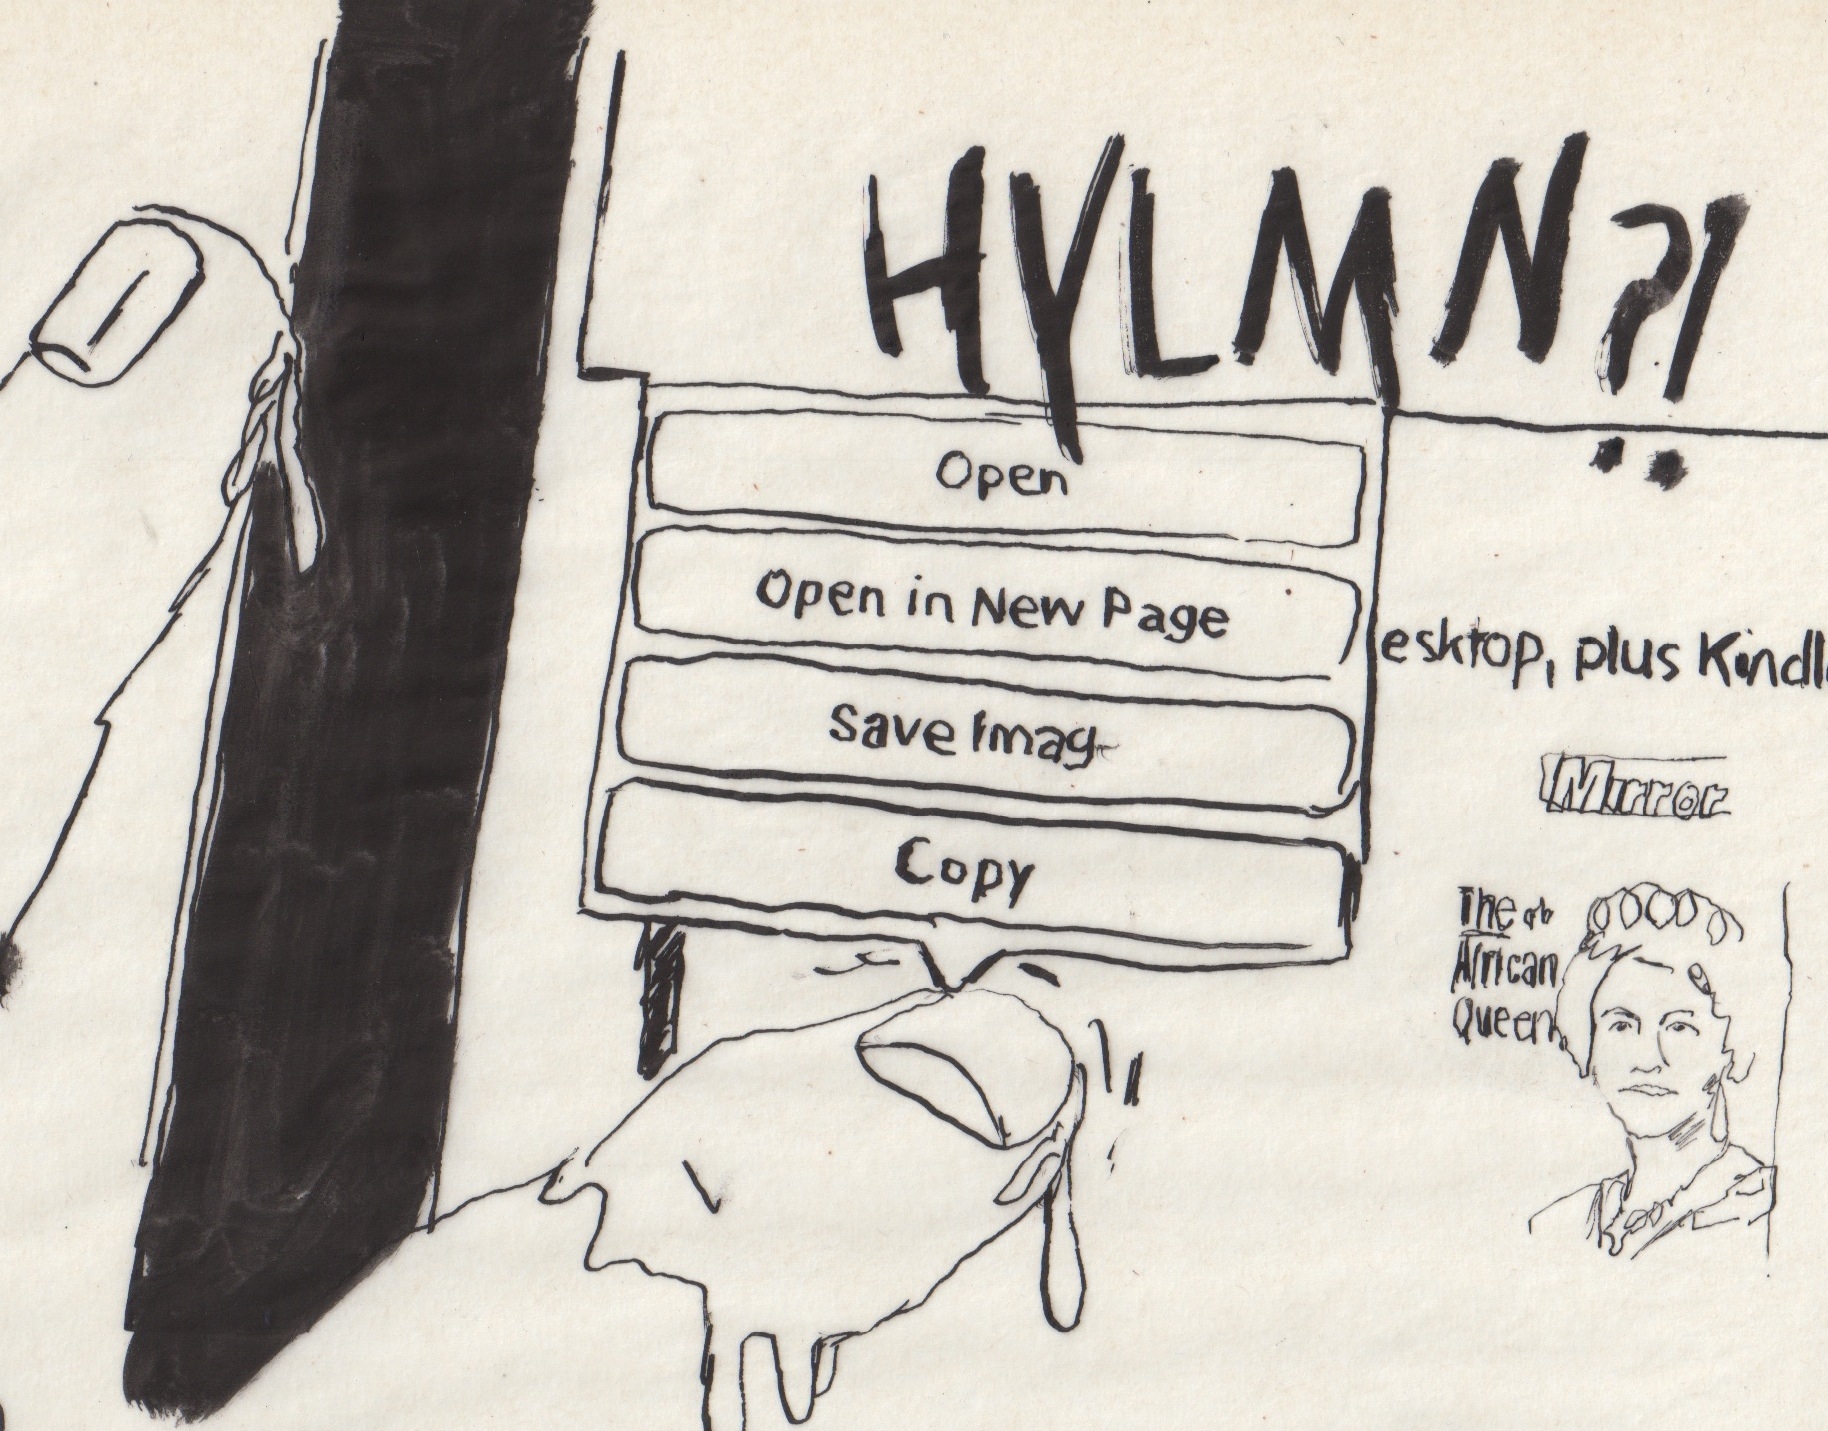 HYLMN?!
Open
Open in New Page
Save Imag
Copy
esktop, plus Kindl
Mirror
The
African
Queen